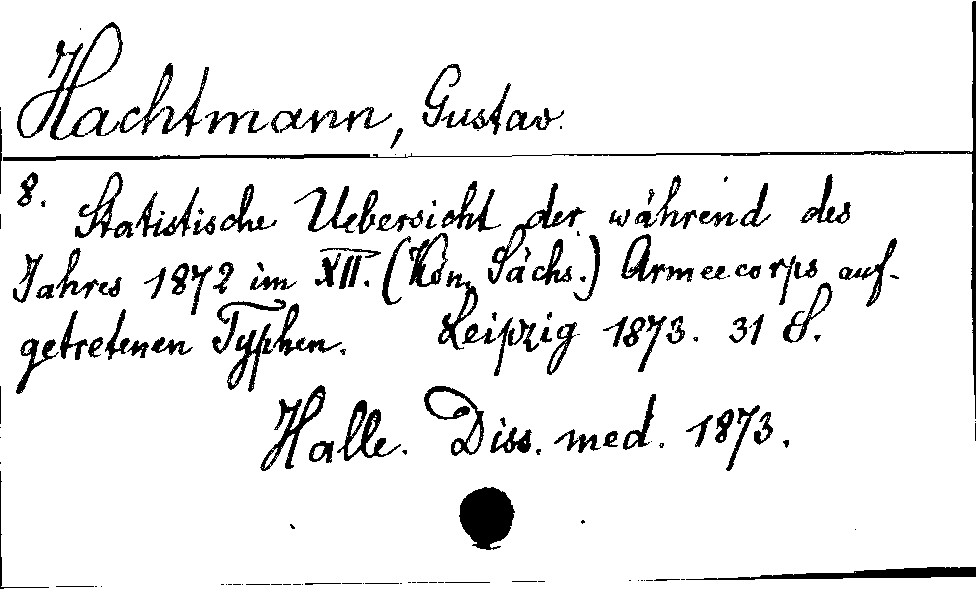 Hachtmann, Gustav.
8. Statistische Uebersicht der während des
Jahres 1872 im XII. (Kön. Sächs.) Armeecorps auf-
getretenen Typhen. Leipzig 1873. 31 S.
Halle. Diss. med. 1873.